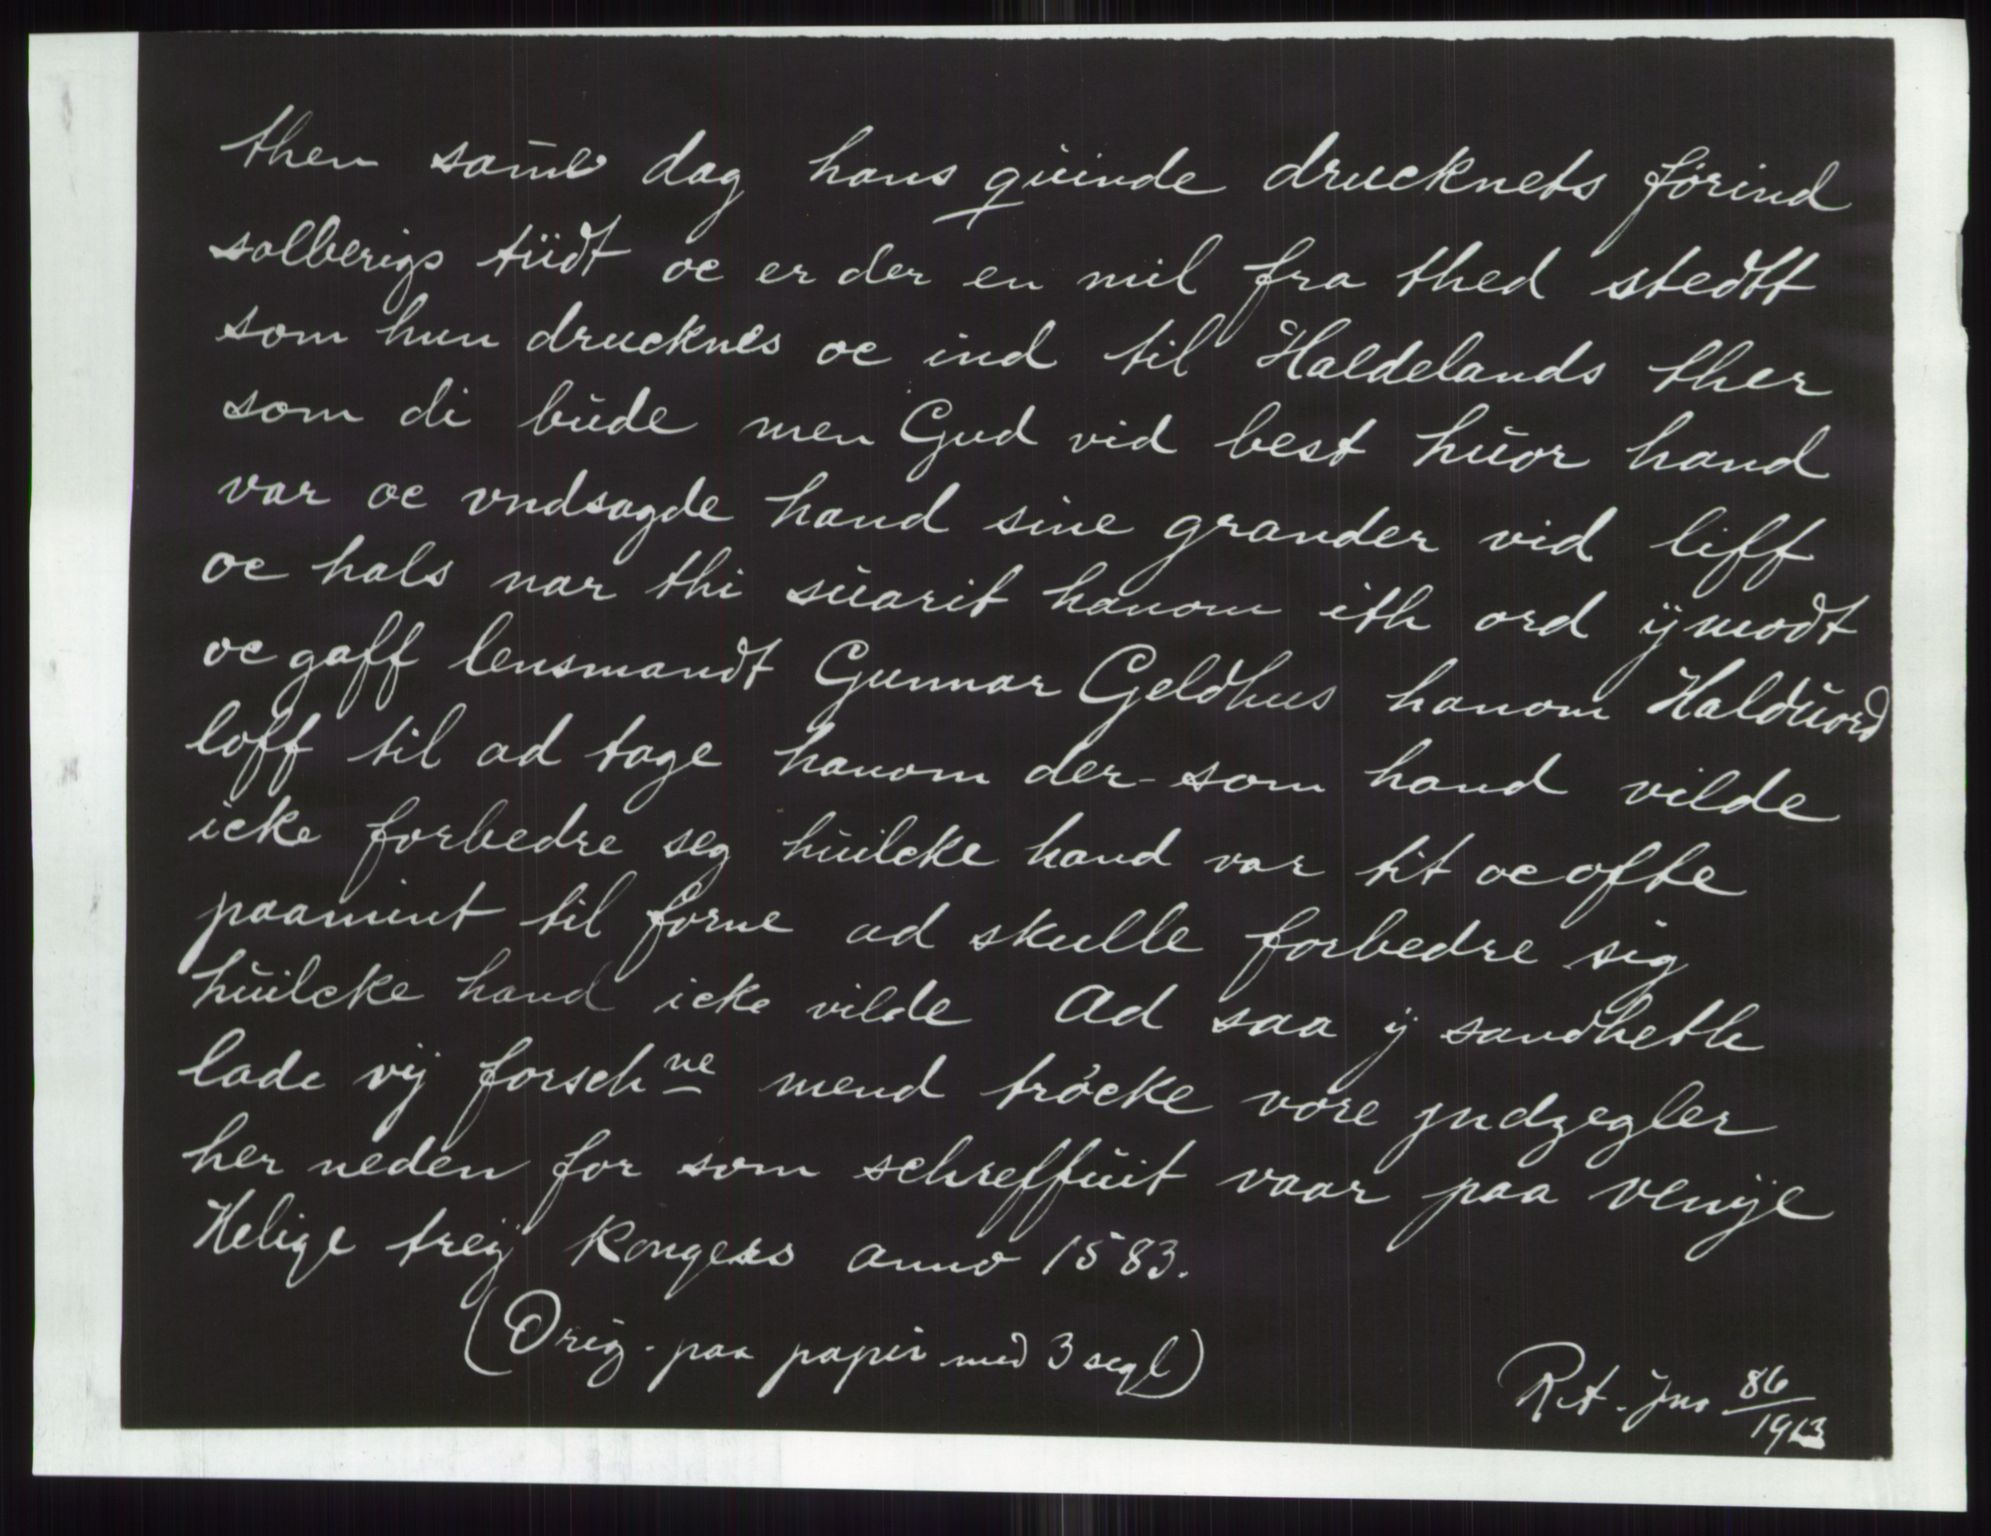 then same dag hans quinde drucknets førind
solberigs tiidt oc er der en mil fra thed stedtt
som hun drucknes oc ind til Haldelands ther
som di bude men Gud vid best huor hand
var oc vndsagde hand sine grander vid liff
oc hals nar thi suarit hanom ith ord ÿ modt
oc gaff lensmandt Gunnar Geldhus hanom Halduord
loff til ad tage hanom der-som hand vilde
icke forbedre seg huilcke hand var tit oc ofte
paamint til forne ad skulle forbedre sig
huilcke hand icke vilde Ad saa ÿ sandheth
lade vij forschne mend trøcke vore jndzegler
her neden for som schreffuit vaar paa venije
Helige treÿ Kongers anno 1583.
(Orig. paa papir med 3 segl)
RA. jno 86/1913